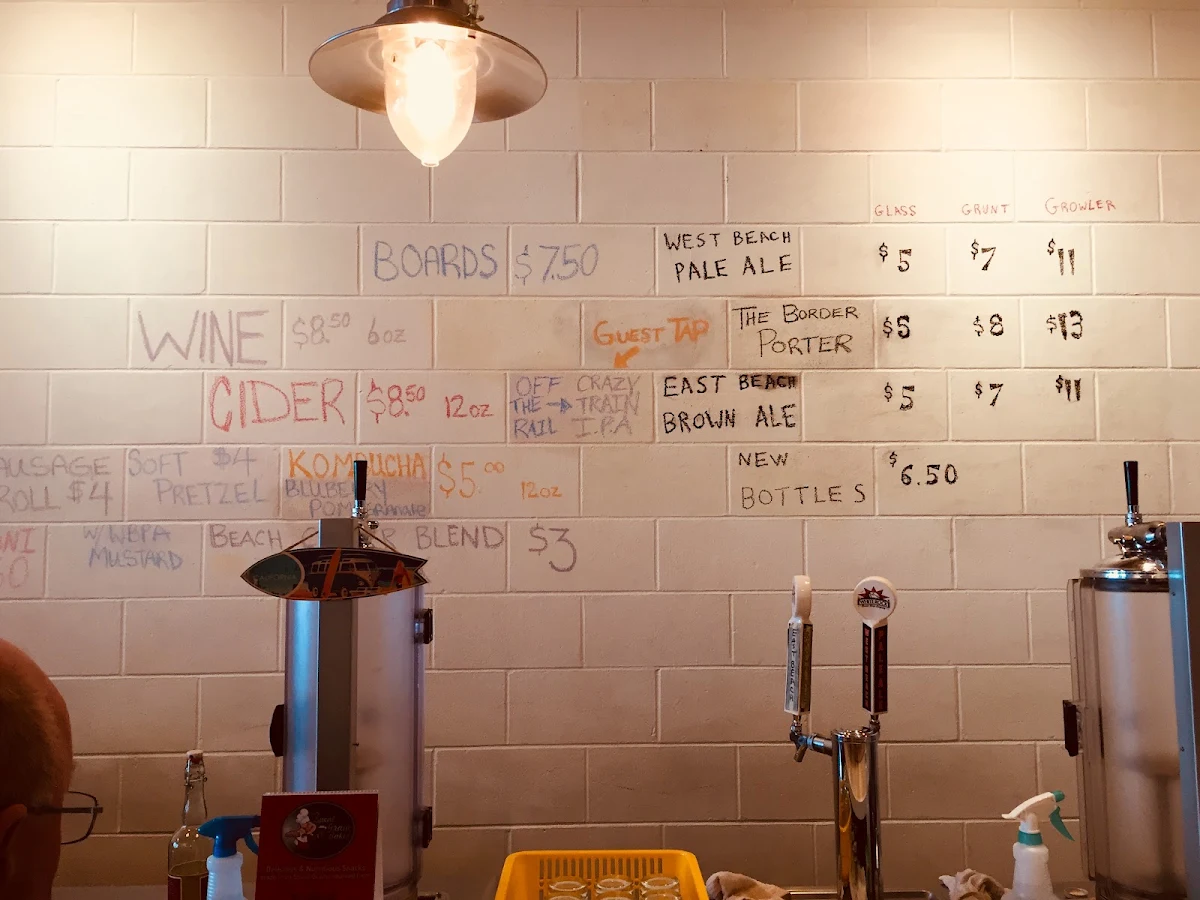 GLASS GRUNT GROWLER
BOARDS $7.50
WEST BEACH
PALE ALE
$5 $7 $11
WINE $8.50 6oz
GUEST TAP
THE BORDER
PORTER
$5 $8 $13
CIDER $8.50 12oz
OFF CRAZY
THE TRAIN
RAIL I.P.A
EAST BEACH
BROWN ALE
$5 $7 $11
AUSAGE
ROLL $4
SOFT $4
PRETZEL
KOMBUCHA
BLUBERRY
POMEGRANATE
$5.00 12oz
NEW
BOTTLES
$6.50
W/ WBPA
MUSTARD
BEACH
BLEND $3
EAST BEACH